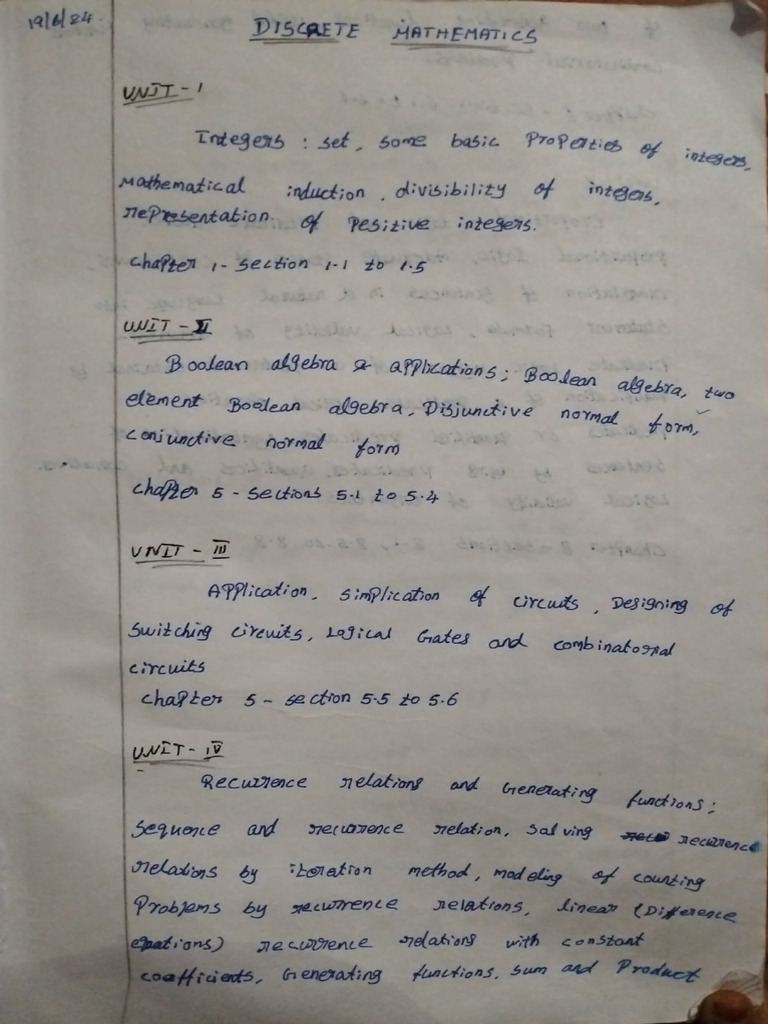 19/6/24
DISCRETE MATHEMATICS
UNIT - 1
Integers : set, some basic Properties of integers,
Mathematical induction, divisibility of integers,
representation of Pesitive integers.
chapter 1 - section 1.1 to 1.5
UNIT - II
Boolean algebra & applications; Boolean algebra, two
element Boolean algebra, Disjunctive normal form,
conjunctive normal form
chapter 5 - sections 5.1 to 5.4
UNIT - III
Application, simplication of circuits, Designing of
switching circuits, Logical Gates and combinatorial
circuits
chapter 5 - section 5.5 to 5.6
UNIT - IV
Recurrence relations and Generating functions;
sequence and recurrence relation, solving recurrence
relations by iteration method, modeling of counting
Problems by recurrence relations, linear (Difference
equations) recurrence relations with constant
coefficients, Generating functions, sum and Product